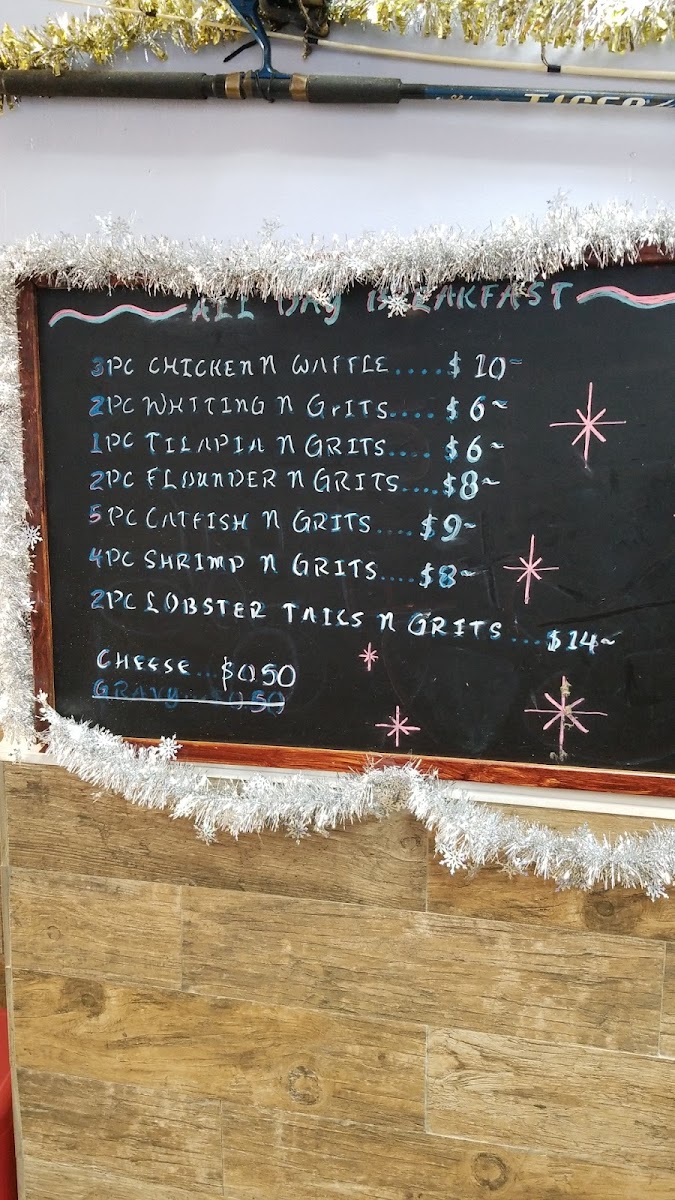 TIGER
ALL DAY BREAKFAST
3PC CHICKEN N WAFFLE.... $ 10~
2PC WHITING N GrITS.... $ 6~
1PC TILAPIA N GRITS.... $6~
2PC FLOUNDER N GRITS.... $8~
5PC CATFISH N GRITS.... $9~
4PC SHRIMP N GRITS.... $8~
2PC LOBSTER TAILS N GRITS ... $14~
CHEESE... $0.50
GRAVY... $0.50